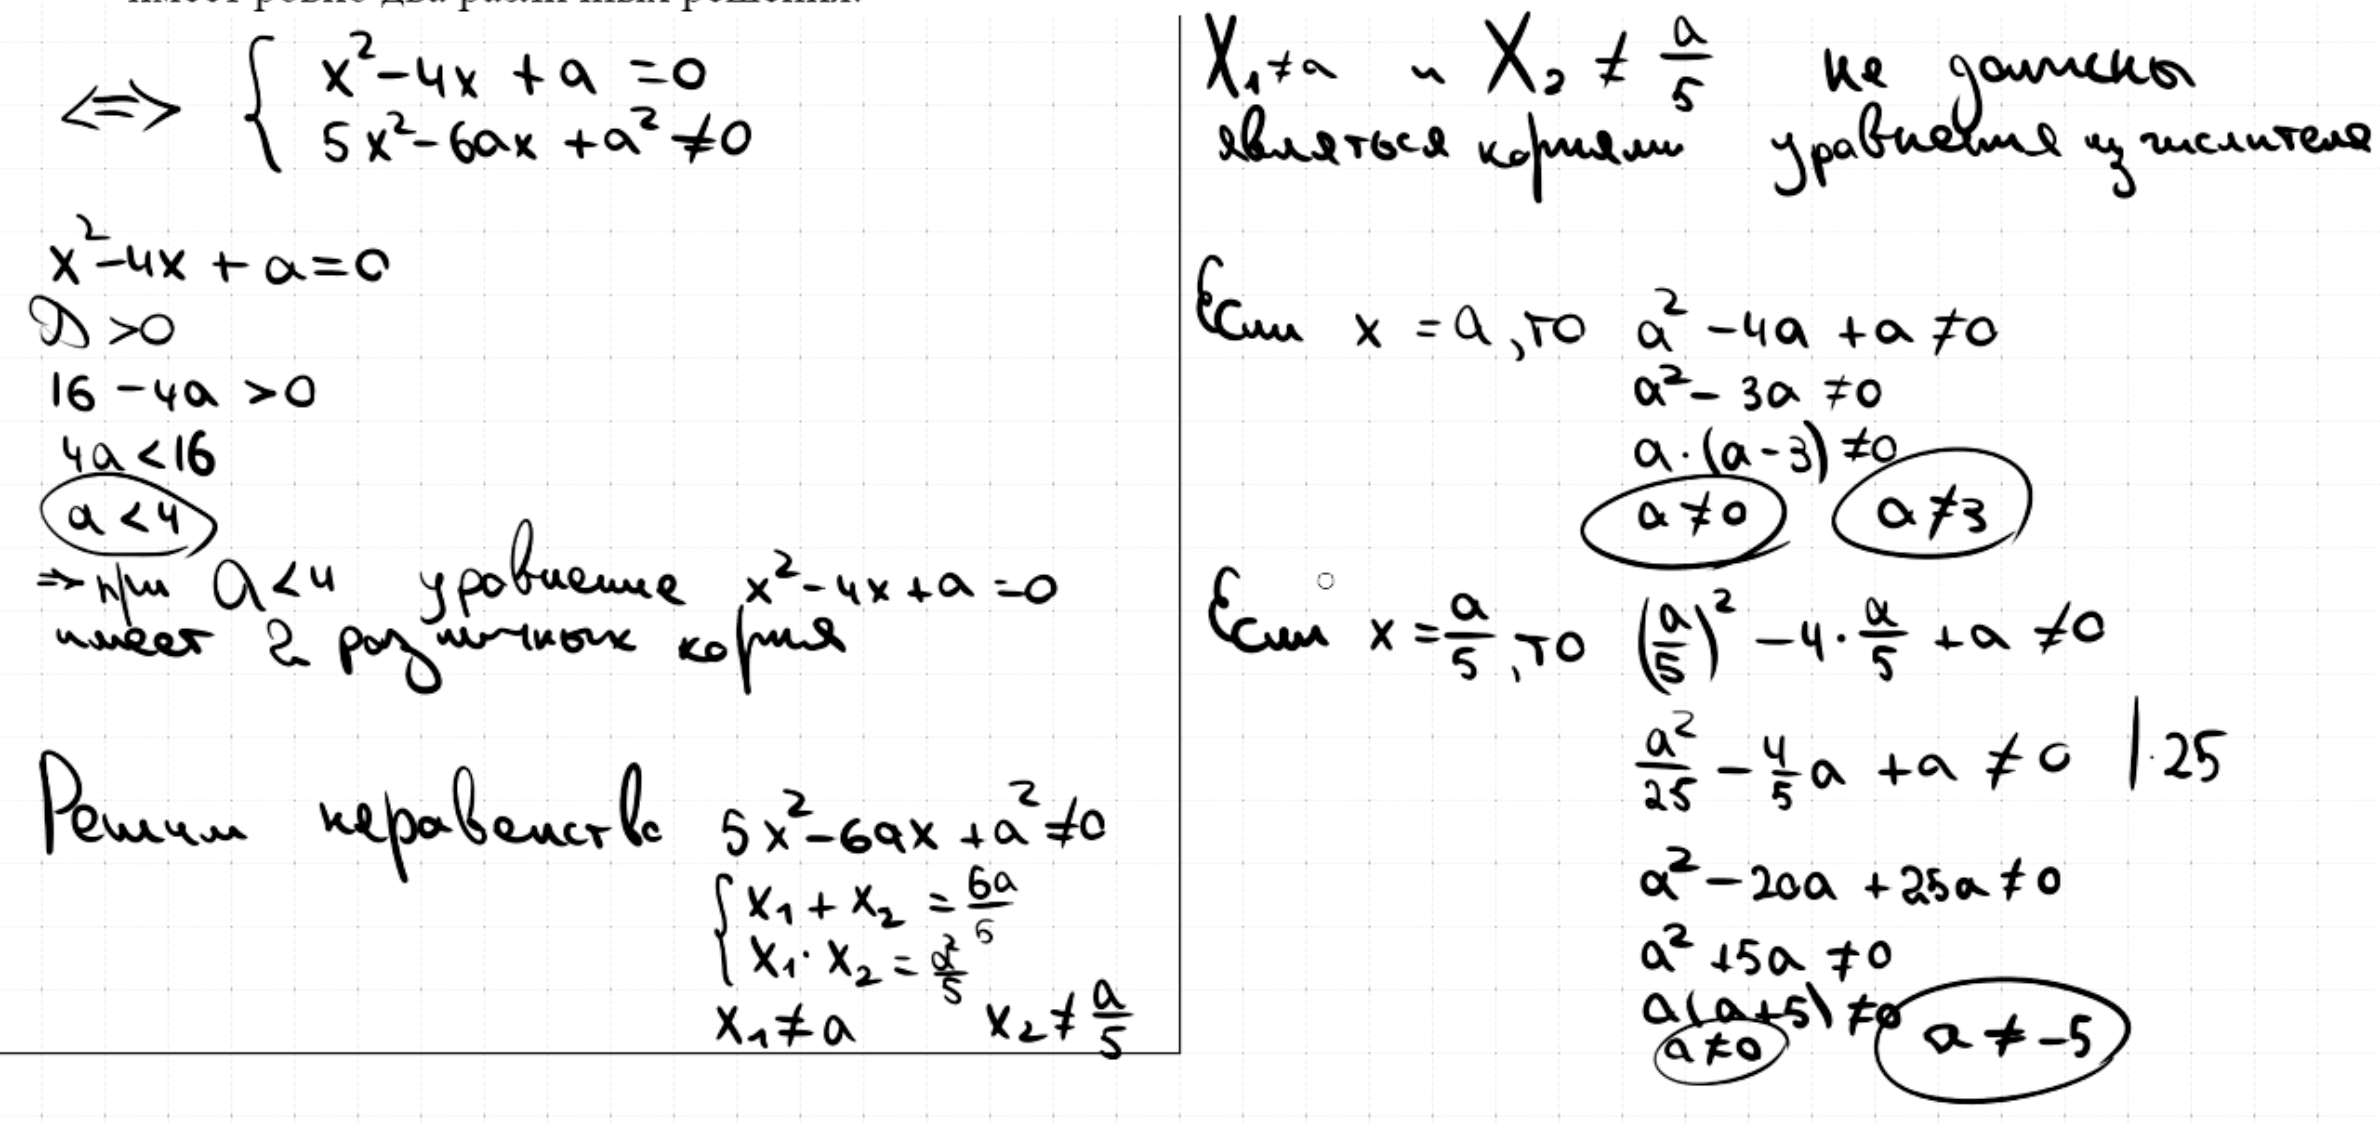 имеет ровно два различных решения.
<=> { x²-4x+a=0
5x²-6ax+a²≠0
x²-4x+a=0
D>0
16-4a>0
4a<16
a<4
=> при a<4 уравнение x²-4x+a=0
имеет 2 различных корня
Решим неравенство 5x²-6ax+a²≠0
{ x₁+x₂=6a/5
x₁·x₂=a²/5
x₁≠a x₂≠a/5
X₁≠a и X₂≠a/5 не должны
являться корнями уравнения из числителя
Если x=a, то a²-4a+a≠0
a²-3a≠0
a·(a-3)≠0
a≠0 a≠3
Если x=a/5, то (a/5)²-4·a/5+a≠0
a²/25-4/5a+a≠0 |·25
a²-20a+25a≠0
a²+5a≠0
a(a+5)≠0
a≠0 a≠-5